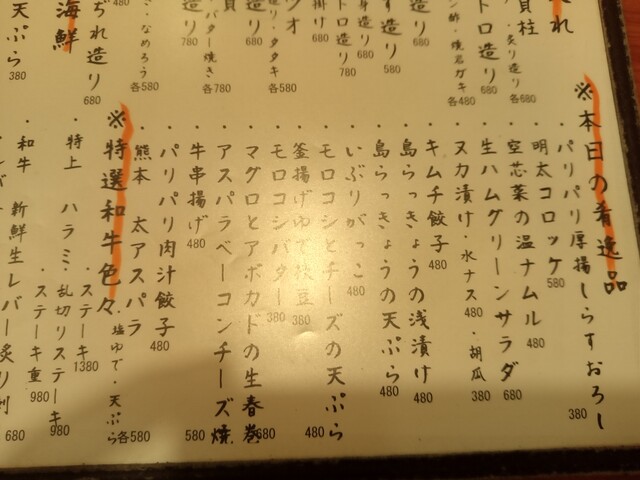 貝柱
・炙り造り
各680
トロ造り
680
ン酢・焼岩ガキ
各480
造り
580
トロ造り
780
掛け
680
ツオ
造り・タタキ
各580
貝
バター焼き
各780
造り
780
・なめろう
各580
ぢれ造り
680
海鮮
天ぷら
380
※本日の肴逸品
・パリパリ厚揚しらすおろし
380
・明太コロッケ
580
・空芯菜の温ナムル
480
・生ハムグリーンサラダ
680
・ヌカ漬け・水ナス・胡瓜
480
380
・キムチ餃子
480
・島らっきょうの浅漬け
480
・島らっきょうの天ぷら
480
・いぶりがっこ
480
・モロコシとチーズの天ぷら
480
・釜揚げゆで枝豆
380
・モロコシバター
380
・マグロとアボカドの生春巻
680
・アスパラベーコンチーズ焼
580
・牛串揚げ
480
・パリパリ肉汁餃子
480
・熊本 太アスパラ
・塩ゆで・天ぷら
各580
※特選和牛色々
・特上 ハラミ・ステーキ
1380
・乱切りステーキ
980
・ステーキ重
980
・和牛 新鮮生レバー炙り刺
680